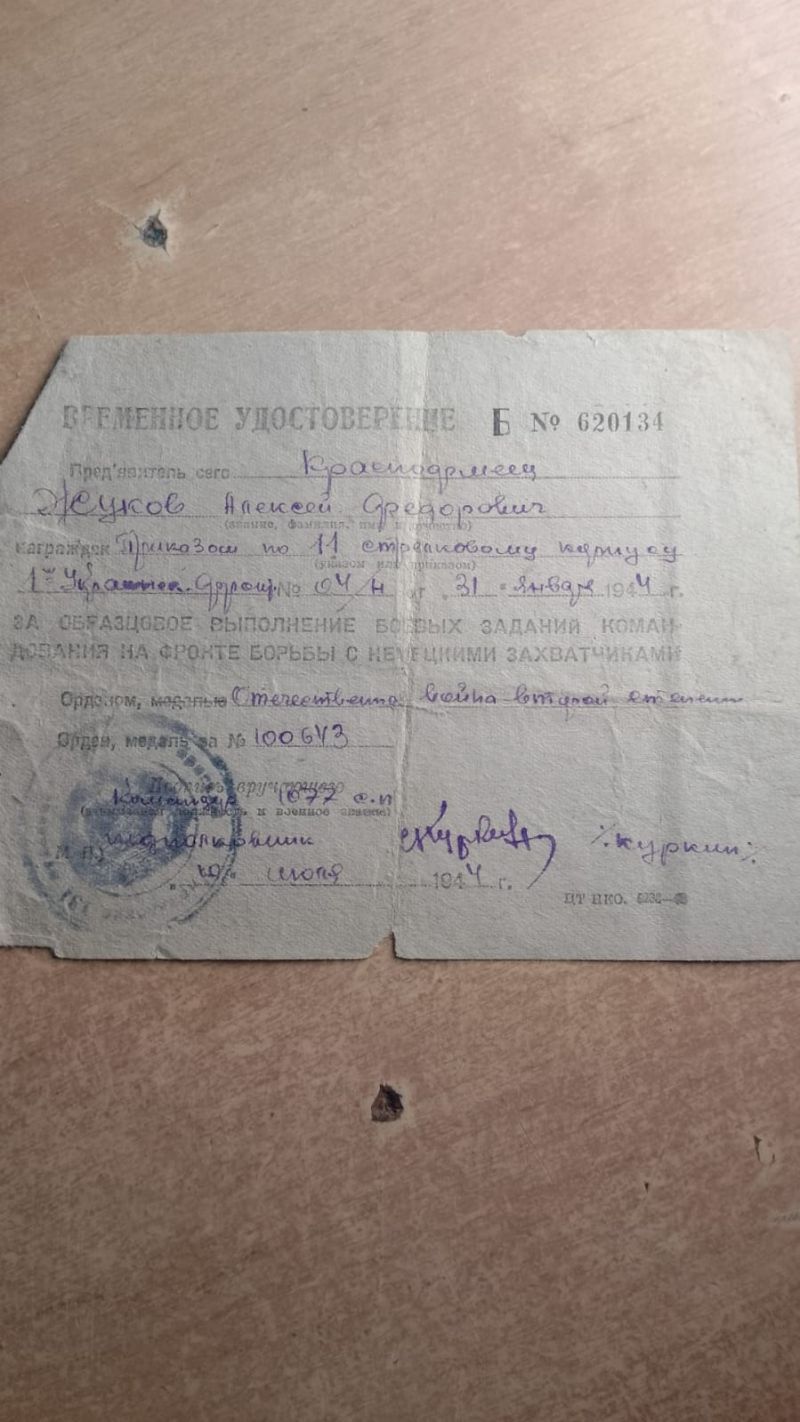 ВРЕМЕННОЕ УДОСТОВЕРЕНИЕ Б № 620134
Пред'явитель сего Красноармеец
Жуков Алексей Федорович
(звание, фамилия, имя и отчество)
награжден Приказом по 11 стрелковому корпусу
(указом или приказом)
1го Украинск. Фронт. № 04/н от 31 января 1944 г.
ЗА ОБРАЗЦОВОЕ ВЫПОЛНЕНИЕ БОЕВЫХ ЗАДАНИЙ КОМАН-
ДОВАНИЯ НА ФРОНТЕ БОРЬБЫ С НЕМЕЦКИМИ ЗАХВАТЧИКАМИ
Орденом, медалью Отечественная война второй степени
Орден, медаль за № 100643
Подпись вручающего
Командир 1077 с.п
должность и военное звание)
подполковник /Куркин/
М. П.
июля 1944 г.
ЦТ НКО.